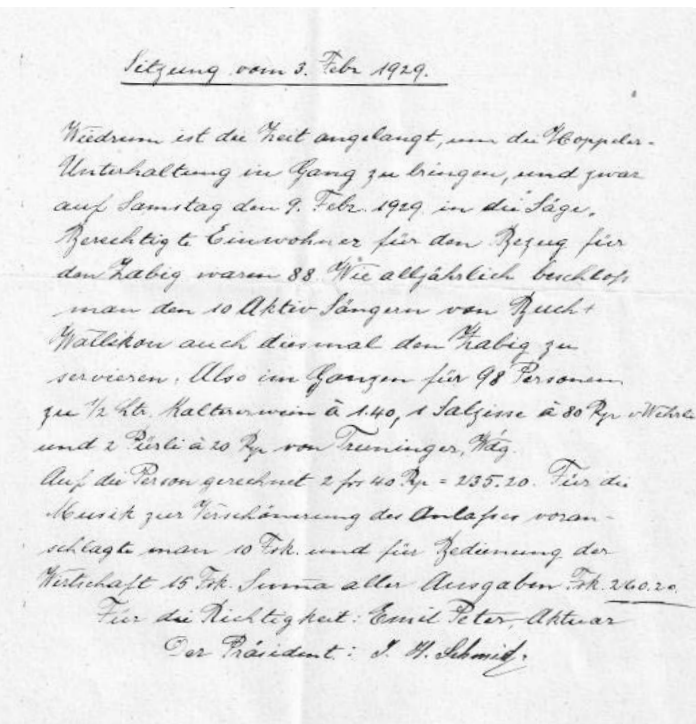 Sitzung vom 3. Febr. 1929.
Wiedrum ist die Zeit angelangt, um die Hoppeler-
Unterhaltung in Gang zu bringen, und zwar
auf Samstag den 9. Febr. 1929 in die Säge.
Berechtigte Einwohner für den Bezug für
den Zabig waren 88. Wie alljährlich beschloss
man den 10 Aktiv Sängern von Buch &
Wallikon auch diesmal den Zabig zu
servieren. Also im Ganzen für 98 Personen
zu 1/2 Ltr. Kaltererwein à 1.40, 1 Salzisse à 80 Rp. v. Wehrli
und 2 Pürli à 20 Rp. von Truninger, Wdg.
Auf die Person gerechnet 2 frs 40 Rp = 235.20. Für die
Musik zur Verschönerung des Anlasses voran-
schlagte man 10 Frk. und für Bedienung der
Wirtschaft 15 Frk. Summa aller Ausgaben Frk. 260.20.
Für die Richtigkeit: Emil Peter, Aktuar
Der Präsident: J. H. Schmid.